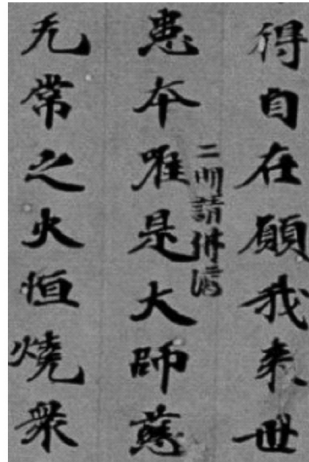 得自在願我来世
二明請佛
患夲唯是大師慈
无常之火恒燒衆